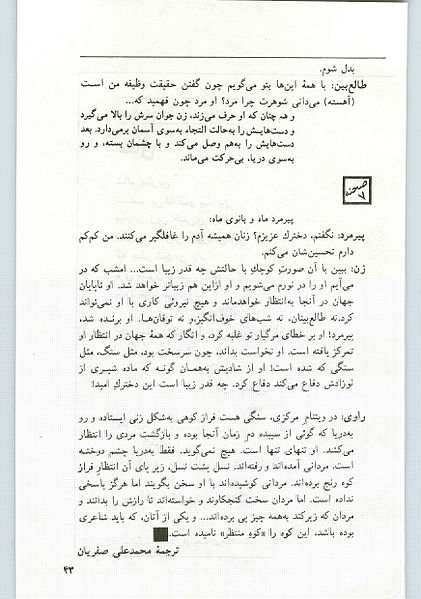 بدل شوم.
طالع‌بین: با همهٔ این‌ها بتو می‌گویم چون گفتن حقیقت وظیفه من است
(آهسته) می‌دانی شوهرت چرا مرد؟ او مرد چون فهمید که...
و هم چنان که او حرف می‌زند، زن جوان سرش را بالا می‌گیرد
و دست‌هایش را به‌حالت التجاء به‌سوی آسمان برمی‌دارد. بعد
دست‌هایش را به‌هم وصل می‌کند و با چشمان بسته، و رو
به‌سوی دریا، بی‌حرکت می‌ماند.
صحنه
۷
پیرمرد ماه و بانوی ماه:
پیرمرد: نگفتم، دخترك عزیزم؟ زنان همیشه آدم را غافلگیر می‌کنند. من کم‌کم
دارم تحسین‌شان می‌کنم.
زن: ببین با آن صورتِ کوچكِ با حالتش چه قدر زیبا است... امشب که در
می‌آیم او را در نورم می‌شویم و او ازاین هم زیباتر خواهد شد. او تاپایان
جهان در آنجا به‌انتظار خواهدماند و هیچ نیروئی کاری با او نمی‌تواند
کرد.نه طالع‌بینان، نه شب‌های خوف‌انگیز،و نه توفان‌ها. او برنده شد،
پیرمرد! او بر خطای مرگبار تو غلبه کرد، و انگار که همهٔ جهان در انتظار او
تمرکز یافته است. او نخواست بداند، چون سرسخت بود، مثل سنگ، مثل
سنگی که شده است! او از شادیش به‌همان گونه که ماده شیری از
نوزادش دفاع می‌کند دفاع کرد. چه قدر زیبا است این دخترك امید!
راوی: در ویتنام مرکزی، سنگی هست فراز کوهی به‌شکل زنی ایستاده و رو
به‌دریا که گوئی از سپیده دمِ زمان آنجا بوده و بازگشت مردی را انتظار
می‌کشد. او تنهای تنها است. هیچ نمی‌گوید. فقط به‌دریا چشم دوخته
است. مردانی آمده‌اند و رفته‌اند. نسل پشت نسل، زیر پای آن انتظارِ فراز
کوه رنج برده‌اند. مردانی کوشیده‌اند با او سخن بگویند اما هرگز پاسخی
نداده است. اما مردان سخت کنجکاوند و خواسته‌اند تا رازش را بدانند و
مردان که زیرکند به‌همه چیز پی برده‌اند... و یکی از آنان، که باید شاعری
بوده باشد، این کوه را «کوهِ منتظر» نامیده است.
ترجمهٔ محمدعلی صفریان
۴۳